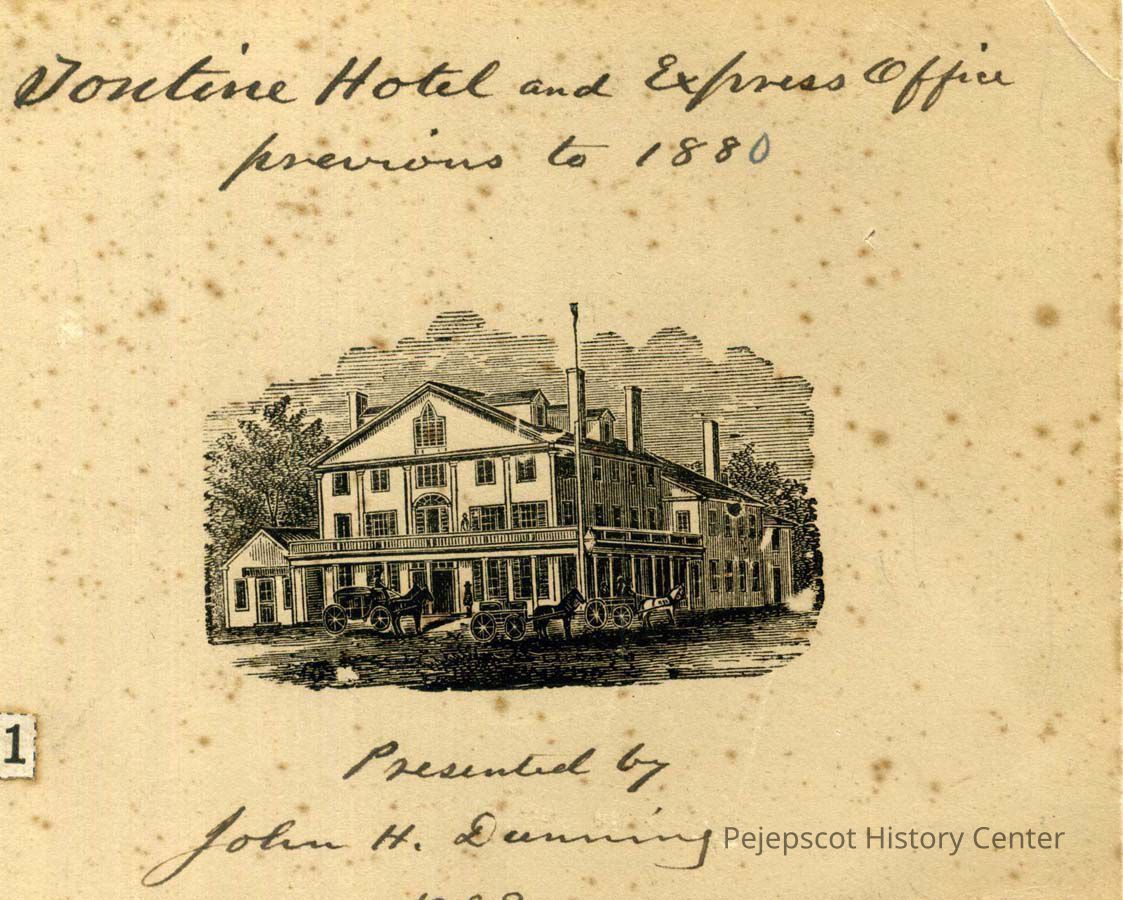 Tontine Hotel and Express Office
previous to 1880
1
Presented by
John H. Dunning
Pejepscot History Center